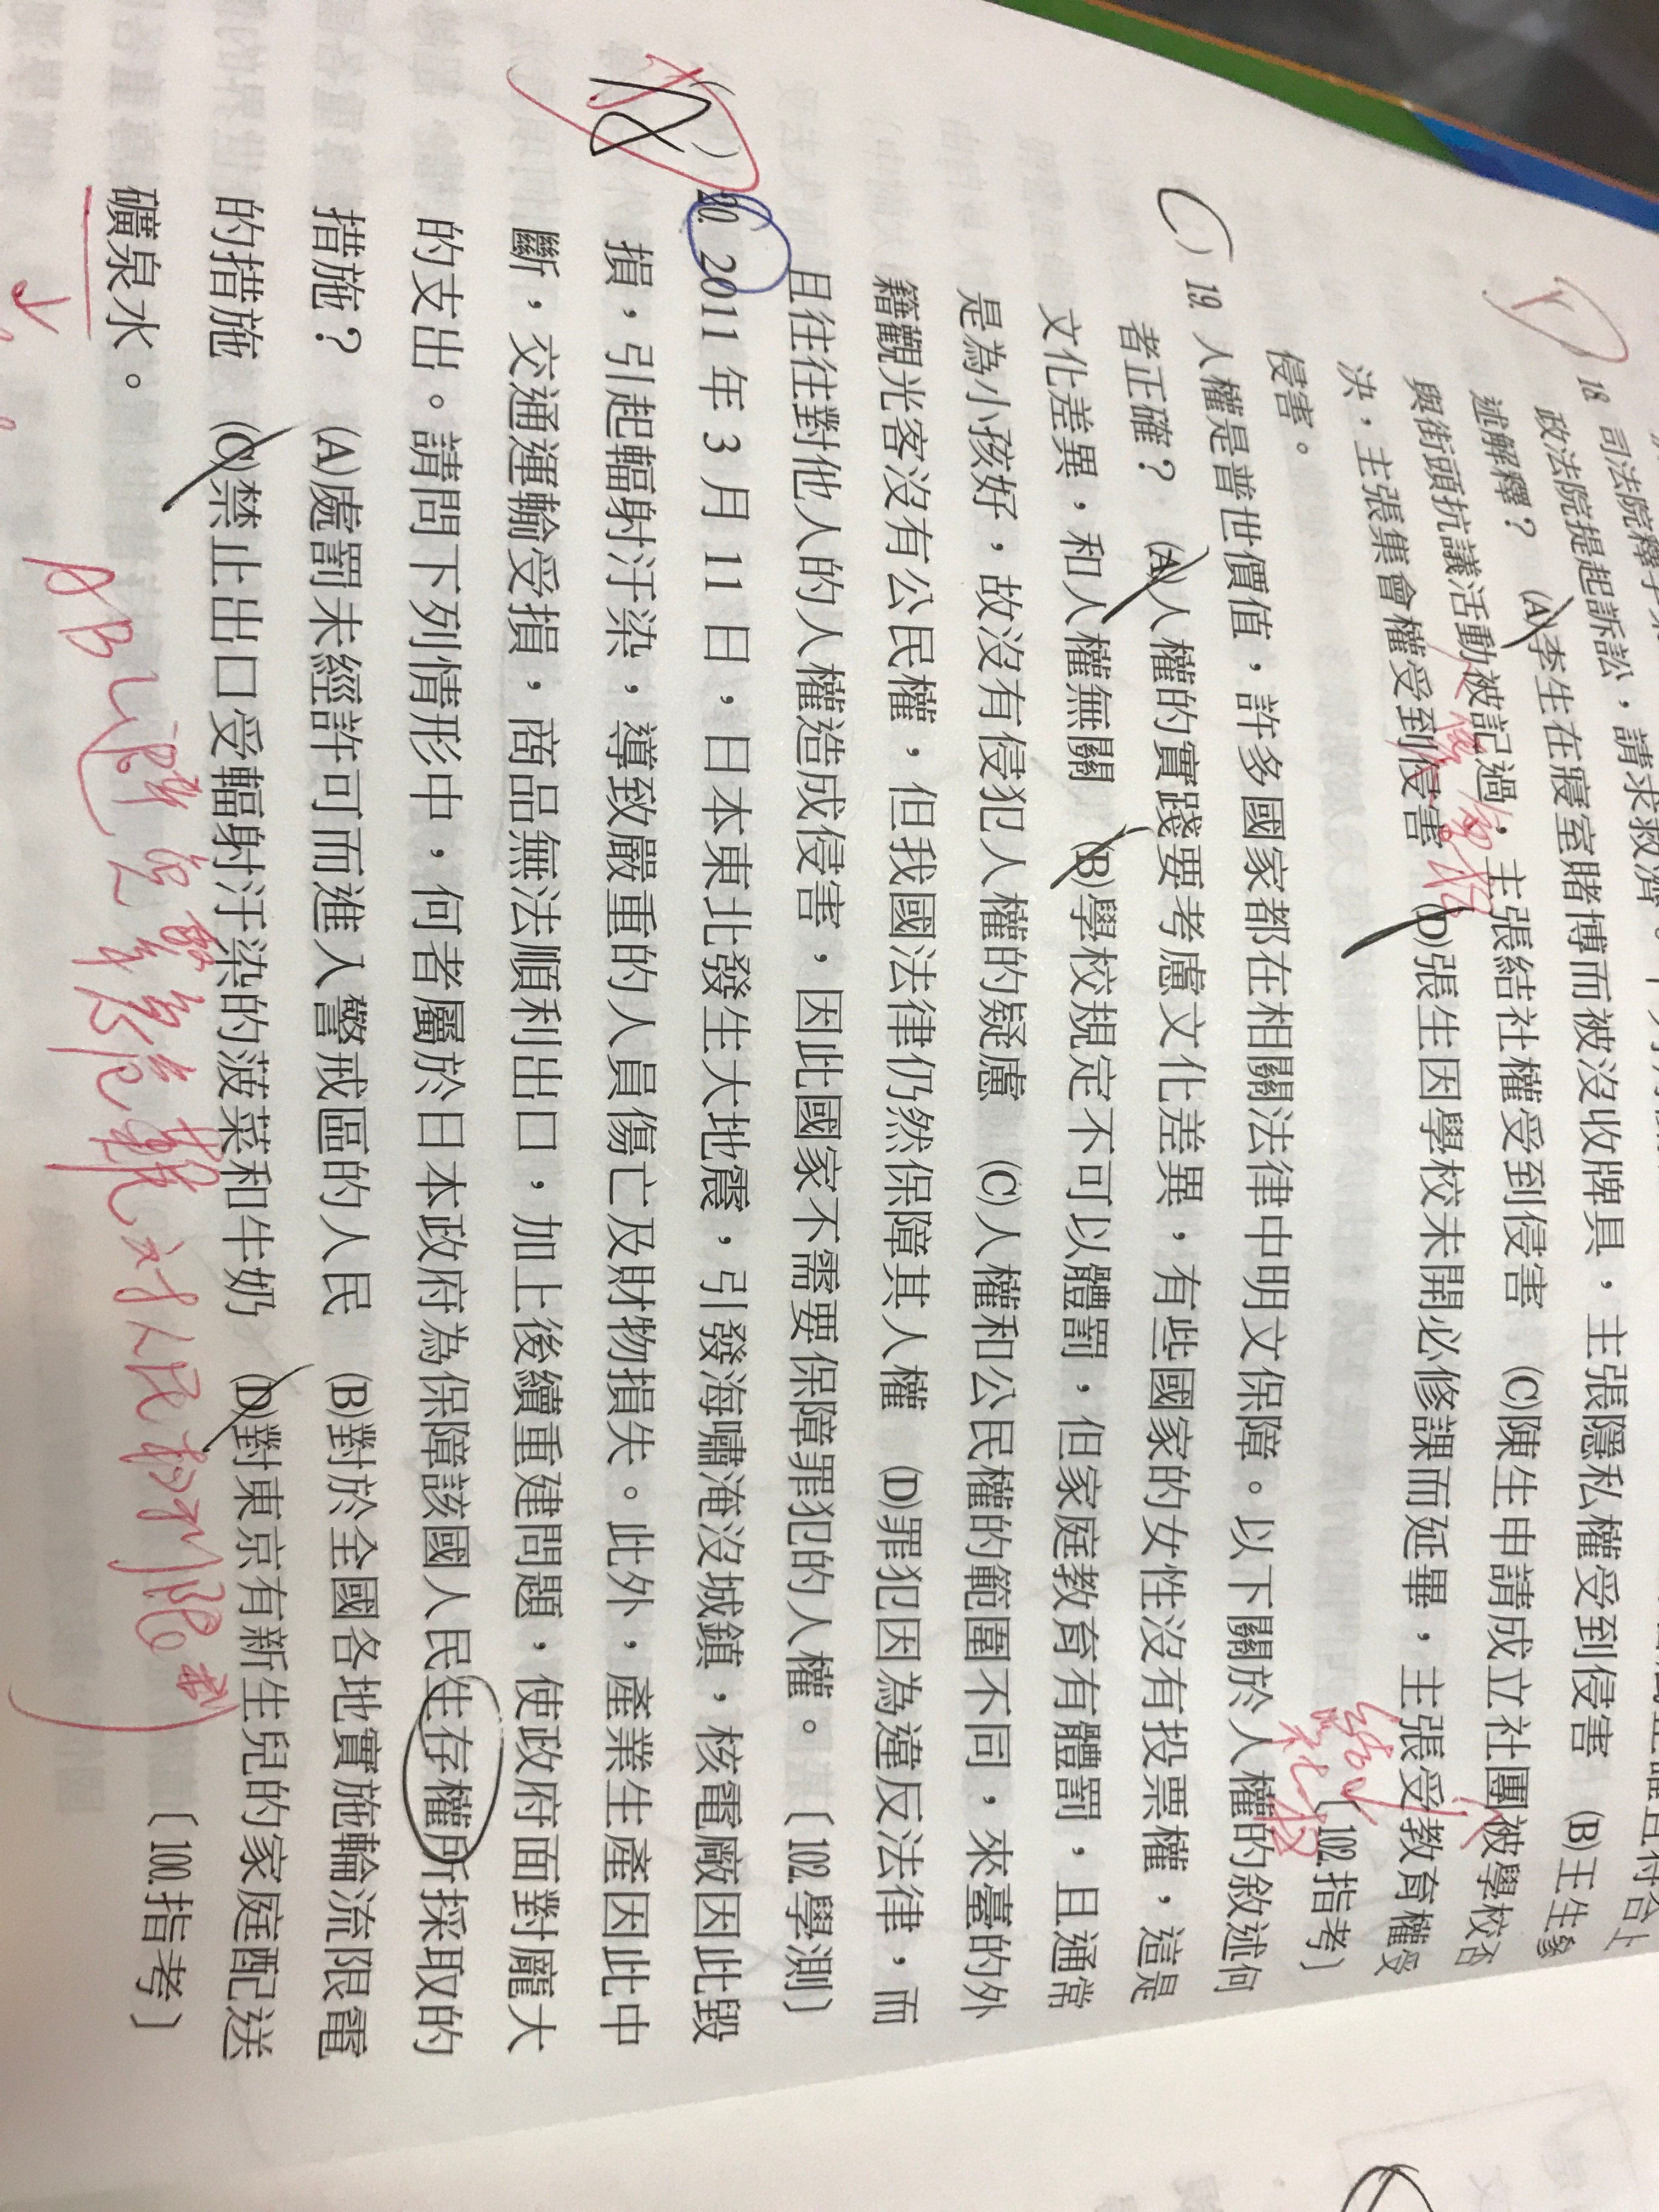 18. 司法院釋字第
政法院提起訴訟，請求救濟。
述解釋？ (A)李生在寢室賭博而被沒收牌具，主張隱私權受到侵害 (B)王生參
與街頭抗議活動被記過，主張結社權受到侵害 (C)陳生申請成立社團被學校否
決，主張集會權受到侵害 (D)張生因學校未開必修課而延畢，主張受教育權受
侵害。 〔102.指考〕
(C) 19. 人權是普世價值，許多國家都在相關法律中明文保障。以下關於人權的敘述何
者正確？ (A)人權的實踐要考慮文化差異，有些國家的女性沒有投票權，這是
文化差異，和人權無關 (B)學校規定不可以體罰，但家庭教育有體罰，且通常
是為小孩好，故沒有侵犯人權的疑慮 (C)人權和公民權的範圍不同，來臺的外
籍觀光客沒有公民權，但我國法律仍然保障其人權 (D)罪犯因為違反法律，而
且往往對他人的人權造成侵害，因此國家不需要保障罪犯的人權。 〔102.學測〕
20. 2011 年 3 月 11 日，日本東北發生大地震，引發海嘯淹沒城鎮，核電廠因此毀
損，引起輻射汙染，導致嚴重的人員傷亡及財物損失。此外，產業生產因此中
斷，交通運輸受損，商品無法順利出口，加上後續重建問題，使政府面對龐大
的支出。請問下列情形中，何者屬於日本政府為保障該國人民生存權所採取的
措施？ (A)處罰未經許可而進入警戒區的人民 (B)對於全國各地實施輪流限電
的措施 (C)禁止出口受輻射汙染的菠菜和牛奶 (D)對東京有新生兒的家庭配送
礦泉水。 〔100.指考〕